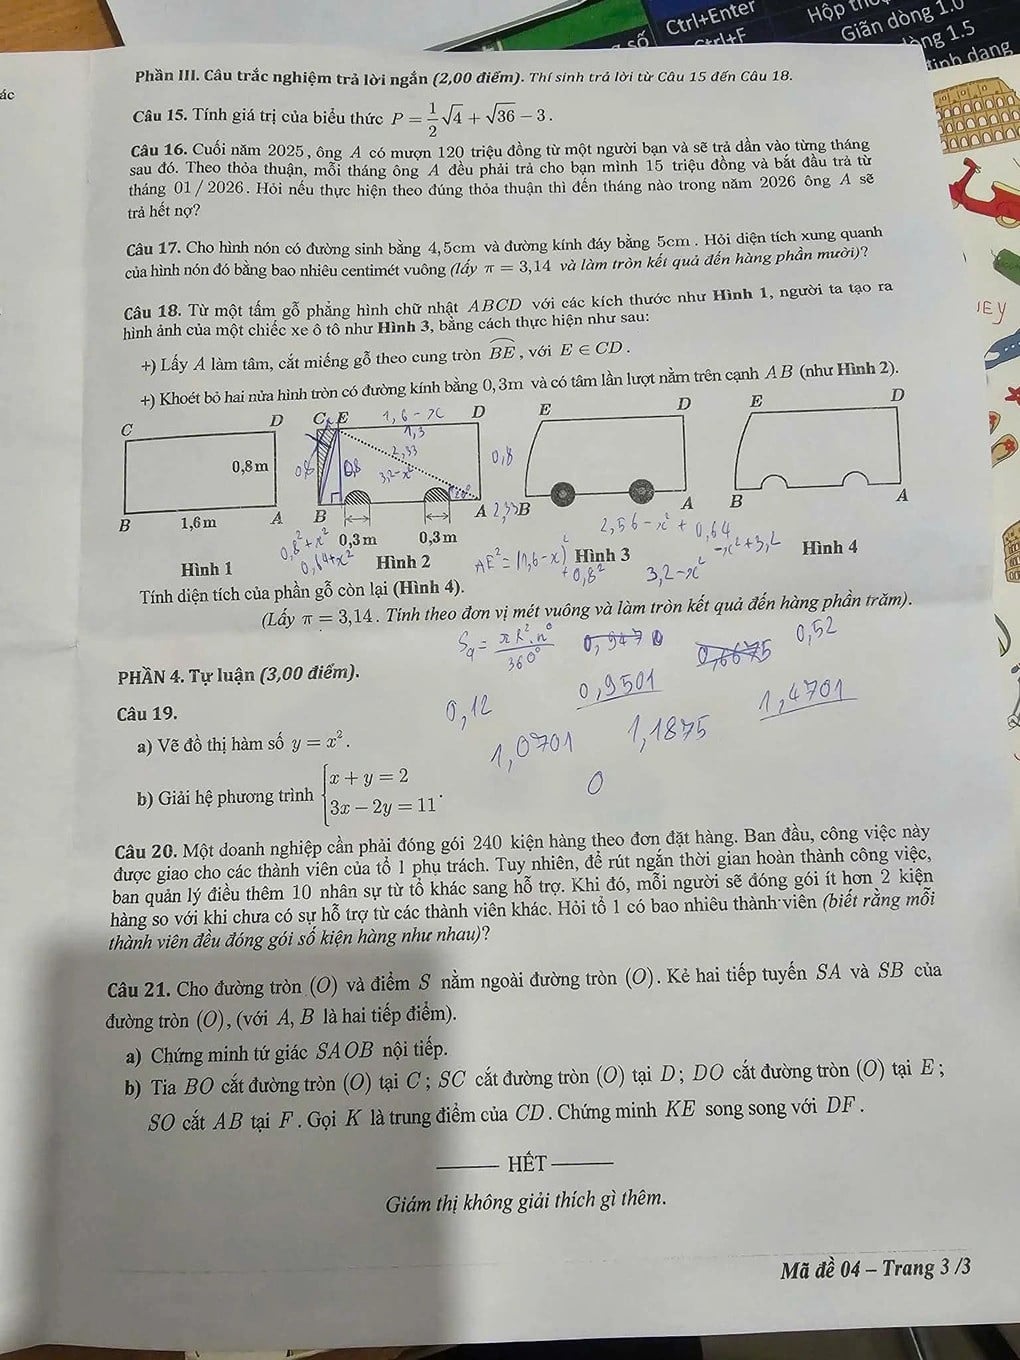 Ctrl+Enter
Ctrl+F
số
Giãn dòng 1.0
1.5
ác
Phần III. Câu trắc nghiệm trả lời ngắn (2,00 điểm). Thí sinh trả lời từ Câu 15 đến Câu 18.
Câu 15. Tính giá trị của biểu thức P = 1/2 √4 + √36 − 3.
Câu 16. Cuối năm 2025, ông A có mượn 120 triệu đồng từ một người bạn và sẽ trả dần vào từng tháng
sau đó. Theo thỏa thuận, mỗi tháng ông A đều phải trả cho bạn mình 15 triệu đồng và bắt đầu trả từ
tháng 01 / 2026. Hỏi nếu thực hiện theo đúng thỏa thuận thì đến tháng nào trong năm 2026 ông A sẽ
trả hết nợ?
Câu 17. Cho hình nón có đường sinh bằng 4,5cm và đường kính đáy bằng 5cm. Hỏi diện tích xung quanh
của hình nón đó bằng bao nhiêu centimét vuông (lấy π = 3,14 và làm tròn kết quả đến hàng phần mười)?
Câu 18. Từ một tấm gỗ phẳng hình chữ nhật ABCD với các kích thước như Hình 1, người ta tạo ra
hình ảnh của một chiếc xe ô tô như Hình 3, bằng cách thực hiện như sau:
+) Lấy A làm tâm, cắt miếng gỗ theo cung tròn BE, với E ∈ CD.
+) Khoét bỏ hai nửa hình tròn có đường kính bằng 0,3m và có tâm lần lượt nằm trên cạnh AB (như Hình 2).
C D C E 1,6 - x D E D E D
1,3
2,33
0,8m 0,8 0,8 3,2-x² 0,8
B 1,6m A B A 2,33 B A B A
0,8²+x² 0,3m 0,3m 2,56-x²+0,64
0,64+x² AE²=(1,6-x)²+0,8² 3,2-x² -x²+3,2
Hình 1 Hình 2 Hình 3 Hình 4
Tính diện tích của phần gỗ còn lại (Hình 4).
(Lấy π = 3,14. Tính theo đơn vị mét vuông và làm tròn kết quả đến hàng phần trăm).
Sq = πR².n°/360° 0,52
PHẦN 4. Tự luận (3,00 điểm).
0,12 0,9501 1,4701
Câu 19.
1,0701 1,1875
a) Vẽ đồ thị hàm số y = x².
0
b) Giải hệ phương trình { x + y = 2
3x − 2y = 11.
Câu 20. Một doanh nghiệp cần phải đóng gói 240 kiện hàng theo đơn đặt hàng. Ban đầu, công việc này
được giao cho các thành viên của tổ 1 phụ trách. Tuy nhiên, để rút ngắn thời gian hoàn thành công việc,
ban quản lý điều thêm 10 nhân sự từ tổ khác sang hỗ trợ. Khi đó, mỗi người sẽ đóng gói ít hơn 2 kiện
hàng so với khi chưa có sự hỗ trợ từ các thành viên khác. Hỏi tổ 1 có bao nhiêu thành viên (biết rằng mỗi
thành viên đều đóng gói số kiện hàng như nhau)?
Câu 21. Cho đường tròn (O) và điểm S nằm ngoài đường tròn (O). Kẻ hai tiếp tuyến SA và SB của
đường tròn (O), (với A, B là hai tiếp điểm).
a) Chứng minh tứ giác SAOB nội tiếp.
b) Tia BO cắt đường tròn (O) tại C; SC cắt đường tròn (O) tại D; DO cắt đường tròn (O) tại E;
SO cắt AB tại F. Gọi K là trung điểm của CD. Chứng minh KE song song với DF.
HẾT
Giám thị không giải thích gì thêm.
Mã đề 04 – Trang 3 /3